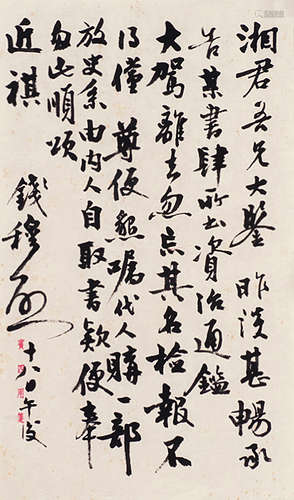 湘君吾兄大鑒 昨談甚暢承
告某書肆所出資治通鑑
大駕離去忽忘其名檢報不
得僅 尊便懇囑代人購一部
放史系由內人自取書款便奉
匆此順頌
近祺
錢穆
十八日午後